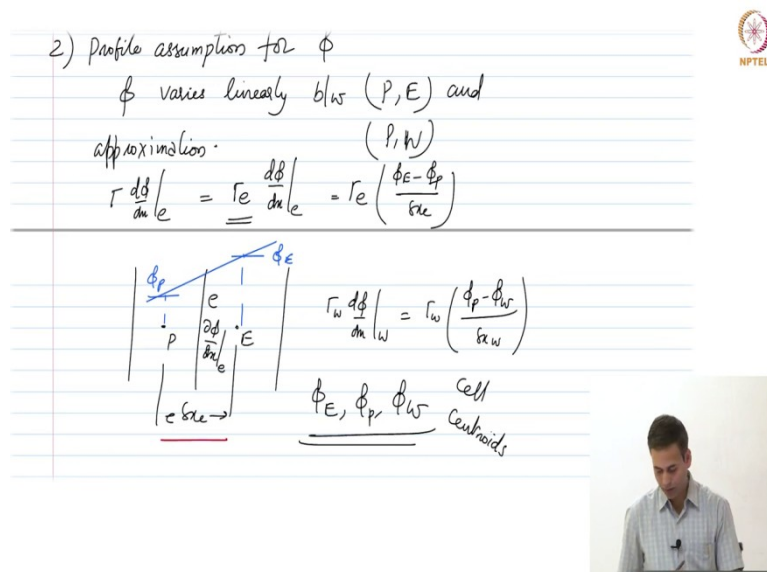 2) Profile assumption for ϕ
ϕ varies linearly b/w (P, E) and
(P, W)
approximation.
Γ dϕ/dx|e = Γe dϕ/dx|e = Γe (ϕE - ϕP / δxe)
ϕP ϕE
e
P ∂ϕ/∂x|e E
δxe →
Γw dϕ/dx|w = Γw (ϕP - ϕW / δxw)
ϕE, ϕP, ϕW Cell
Centroids
NPTEL